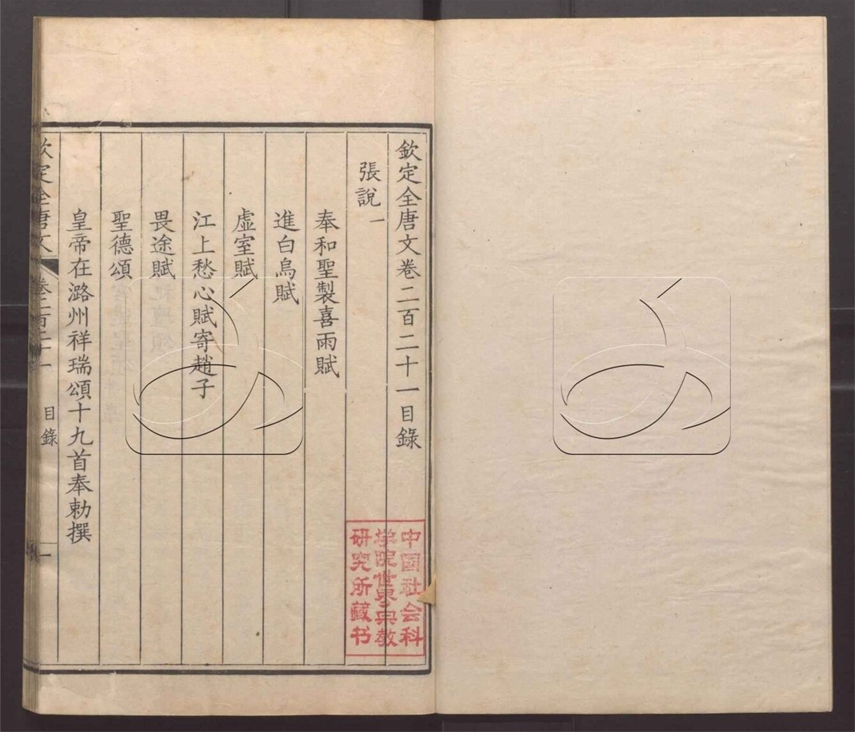 欽定全唐文卷二百二十一目錄
張說一
奉和聖製喜雨賦
進白烏賦
虛室賦
江上愁心賦寄趙子
畏途賦
聖德頌
皇帝在潞州祥瑞頌十九首奉勅撰
欽定全唐文 卷二百二十一 目錄 一
中國社会科
学院世界宗教
研究所藏书